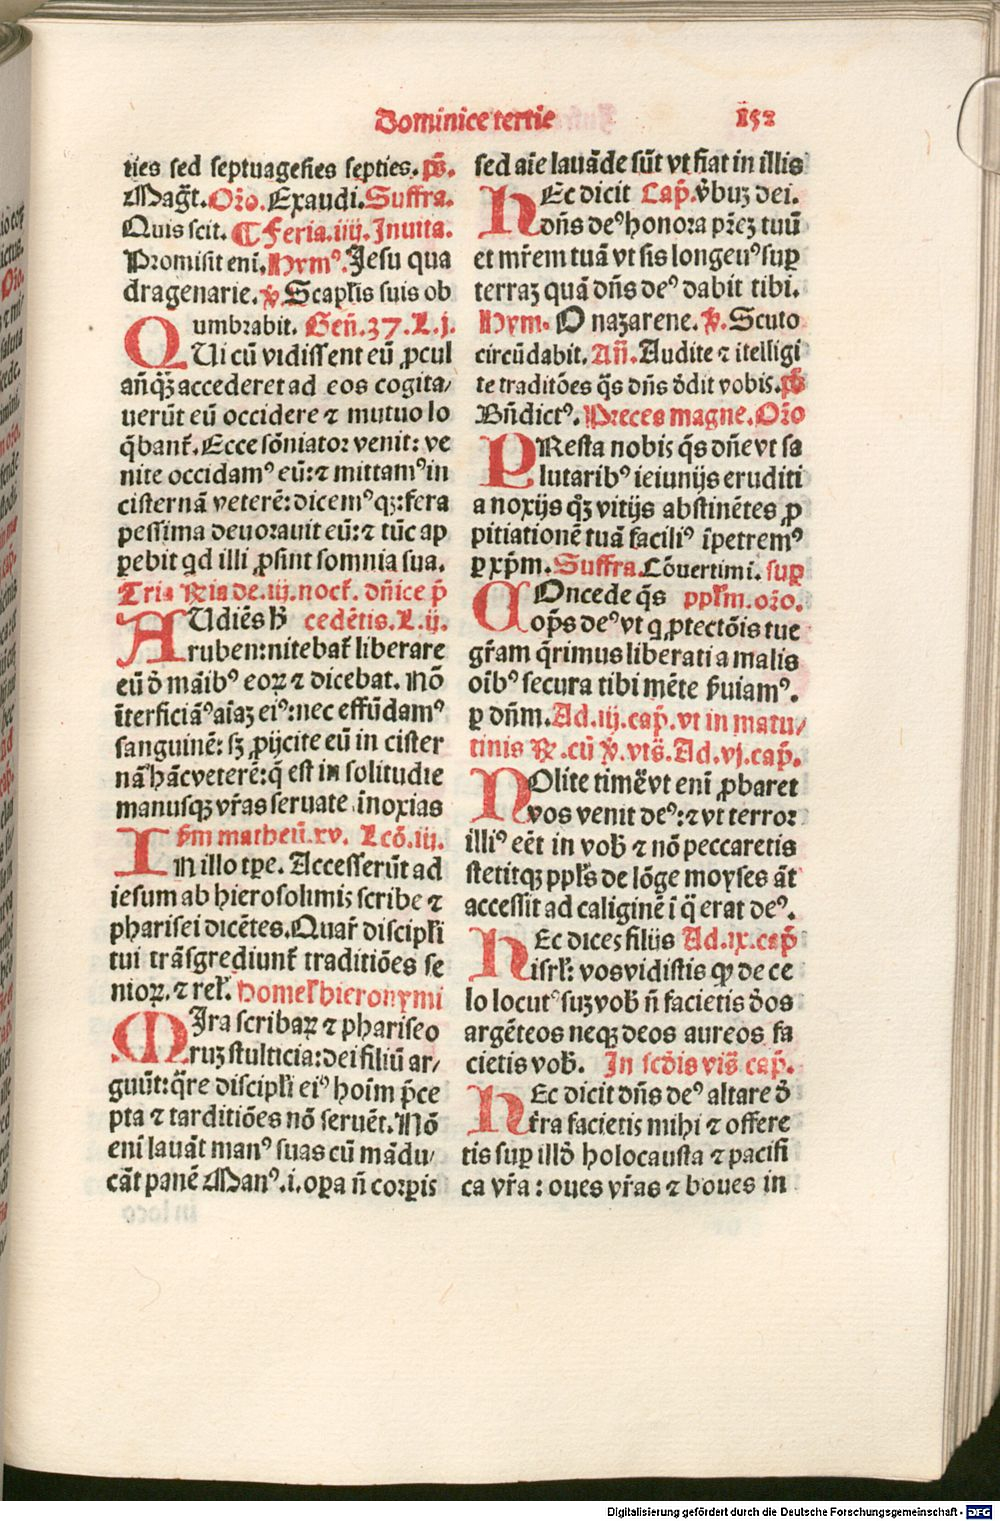 Dominice tertie 152
ties sed septuagesies septies. ps̄.
Mag̃t. Oro. Exaudi. Suffra.
Quis scit. ¶ Feria. iiij. Inuita.
Promisit enĩ. Hymꝰ. Jesu qua
dragenarie. ℣ Scapl̃is suis ob
umbrabit. Geñ. 37. L. j.
QUi cũ vidissent eũ ꝓcul
añq̃ꝫ accederet ad eos cogita/
uerũt eũ occidere ⁊ mutuo lo
q̃bant̃. Ecce sõniator venit: ve
nite occidamꝰ eũ: ⁊ mittamꝰ in
cisternã veterẽ: dicemꝰ qꝫ: fera
pessima deuorauit eũ: ⁊ tũc ap
ꝑebit qd illi ꝓsint somnia sua.
Tria ℟ia de. iij. noct̃. dñice p̃
AUdiẽs h̃ cedẽtis. L. ij.
ruben: nitebat̃ liberare
eũ d̃ mãibꝰ eoꝝ ⁊ dicebat. Nõ
ĩterficiãꝰ aĩaꝫ eiꝰ: nec effũdamꝰ
sanguinẽ: sꝫ ꝓijcite eũ in cister
nã hãc veterẽ: q̃ est in solitudĩe
manusqꝫ vr̃as seruate innoxias
Sm̃ matheũ. xv. Lcõ. iij.
IN illo tꝑe. Accesserũt ad
iesum ab hierosolimis scribe ⁊
pharisei dicẽtes. Quar̃ discipl̃i
tui trãsgrediunt̃ traditiões se
nioꝝ. ⁊ rel̃. Homel̃ hieronymi
MIra scribaꝝ ⁊ phariseo
ruꝫ stulticia: dei filiũ ar/
guũt: q̃re discipl̃i eiꝰ hoĩm p̃ce
pta ⁊ tarditiões nõ seruẽt. Nõ
enĩ lauãt manꝰ suas cũ mãdu/
cãt panẽ Manꝰ. i. oꝑa ñ corꝑis
sed aĩe lauãde sũt vt fiat in illis
HEc dicit Cap̃. ṽbuꝫ dei.
dñs deꝰ honora pr̃eꝫ tuũ
et mr̃em tuã vt sis longeuꝰ suꝑ
terraꝫ quã dñs deꝰ dabit tibi.
Hym. O nazarene. ℣. Scuto
circũdabit. Añ. Audite ⁊ ĩtelligi
te traditões q̃s dñs d̃dit vobis. ps̄
Bñdictꝰ. Preces magne. Oro
PResta nobis q̃s dñe vt sa
lutaribꝰ ieiunijs eruditi
a noxijs q̃ꝫ vitijs abstinẽtes ꝓ
pitiationẽ tuã faciliꝰ ĩpetremꝰ
ꝑ xp̃m. Suffra. Cõuertimi. suꝑ
COncede q̃s ppl̃m. oro.
op̃s deꝰ vt q ꝓtectõis tue
gr̃am q̃rimus liberati a malis
oĩbꝰ secura tibi mẽte ẜuiamꝰ.
ꝑ dñm. Ad. iij. cap̃. vt in matu/
tinis ℟. cũ ℣. vis̃. Ad. vj. cap̃.
NOlite timẽvt enĩ ꝓbaret
vos venit deꝰ: ⁊ vt terror
illiꝰ eẽt in vob̃ ⁊ nõ peccaretis
stetitqꝫ ppl̃s de lõge moyses ãt
accessit ad caliginẽ ĩ q̃ erat deꝰ.
HEc dices filijs Ad. ix. cap̃
isrl̃: vos vidistis ꝙ de ce
lo locutꝰ suꝫ vob̃ ñ facietis d̃os
argẽteos neqꝫ deos aureos fa
cietis vob̃. In scd̃is vis̃ cap̃.
HEc dicit dñs deꝰ altare d̃
t̃ra facietis mihi ⁊ offere
tis suꝑ illd̃ holocausta ⁊ pacifi
ca vr̃a: oues vr̃as ⁊ boues in
Digitalisierung gefördert durch die Deutsche Forschungsgemeinschaft - DFG